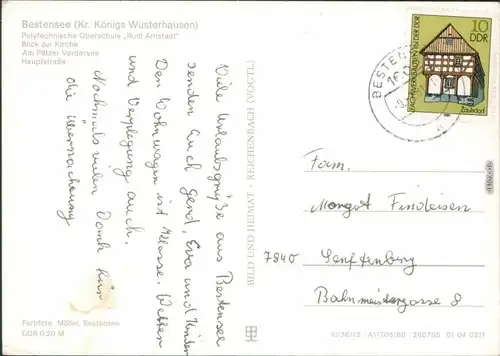 Bestensee (Kr. Königs Wusterhausen)
Polytechnische Oberschule „Rudi Arnstadt“
Blick zur Kirche
Am Pätzer Vordersee
Hauptstraße
Viele Urlaubsgrüße aus Bestensee
senden Euch Gerd, Eva und Kinder
Der Wohnwagen ist Klasse. Wetter
und Verpflegung auch.
Nochmals vielen Dank für
die Überraschung
Farbfoto: Möller, Bestensee
DDR 0,20 M
BILD UND HEIMAT · REICHENBACH (VOGTL)
BESTEN
10
DDR
FACHWERKBAUTEN IN DER DDR
Zaulsdorf
Fam.
Margot Findeisen
7840 Senftenberg
Bahnmeistergasse 8
A1/706/80 260705 01 04 0211